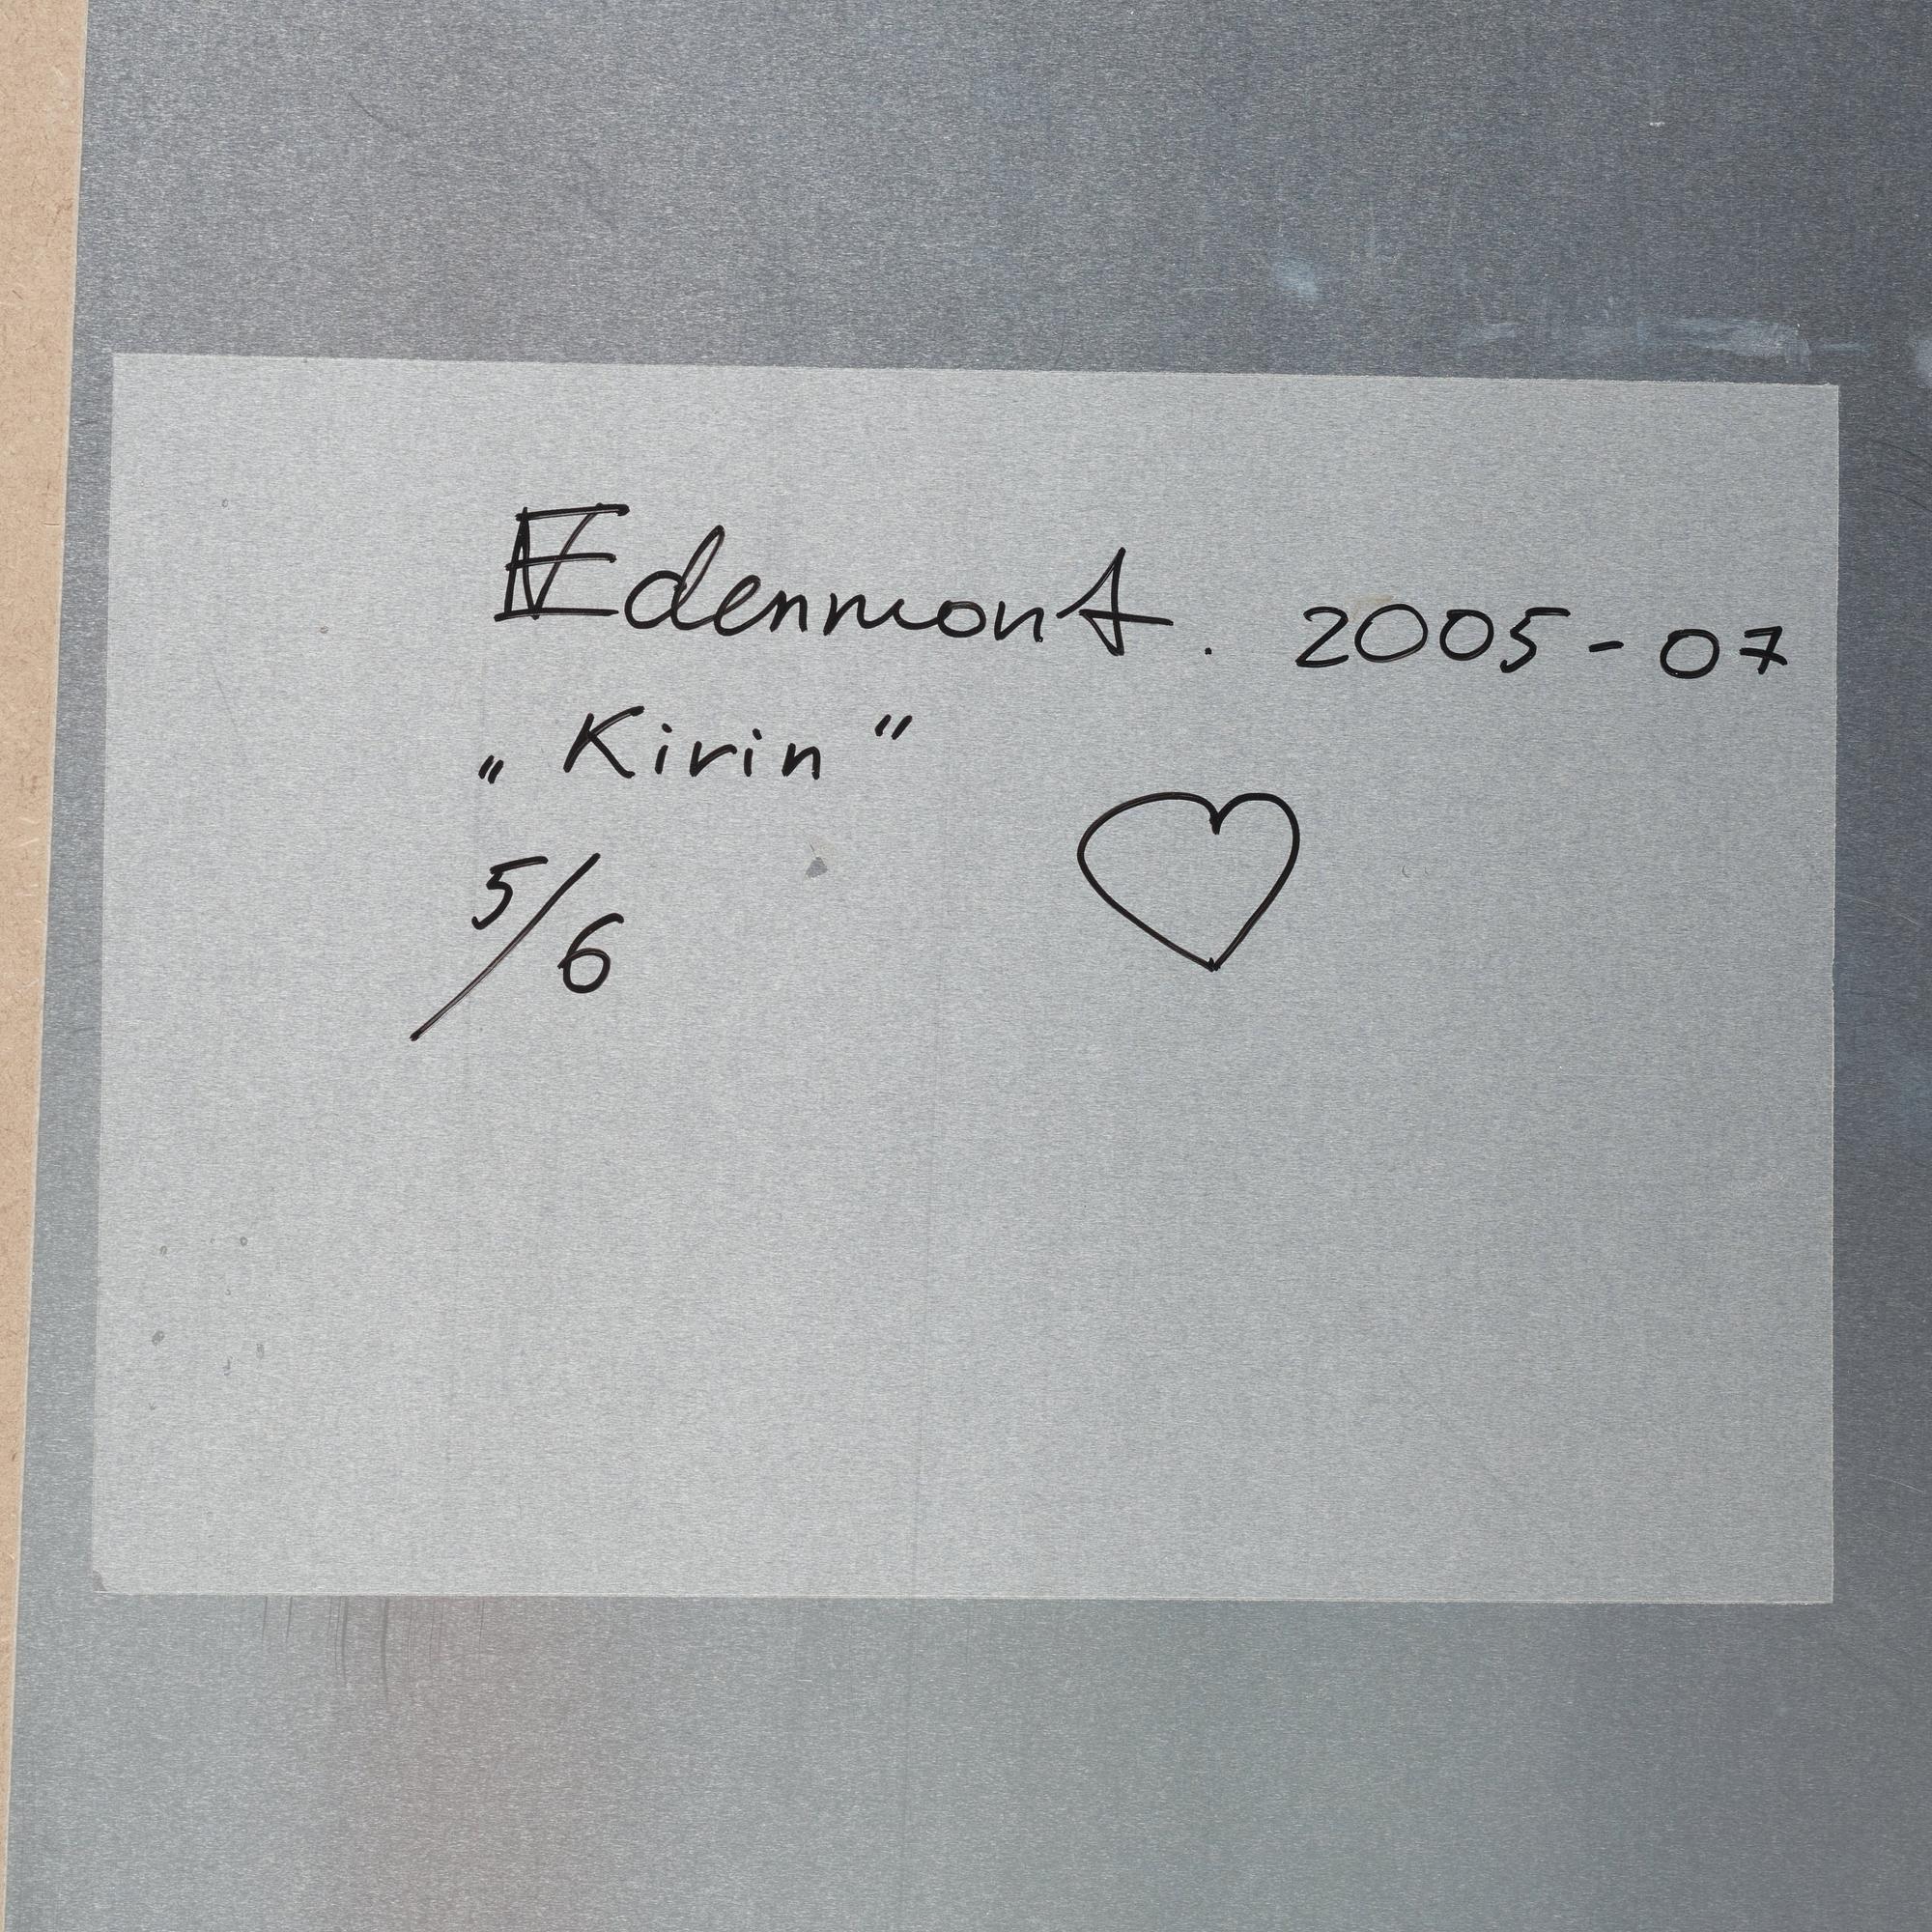 Edenmont. 2005-07
„Kirin“
5/6